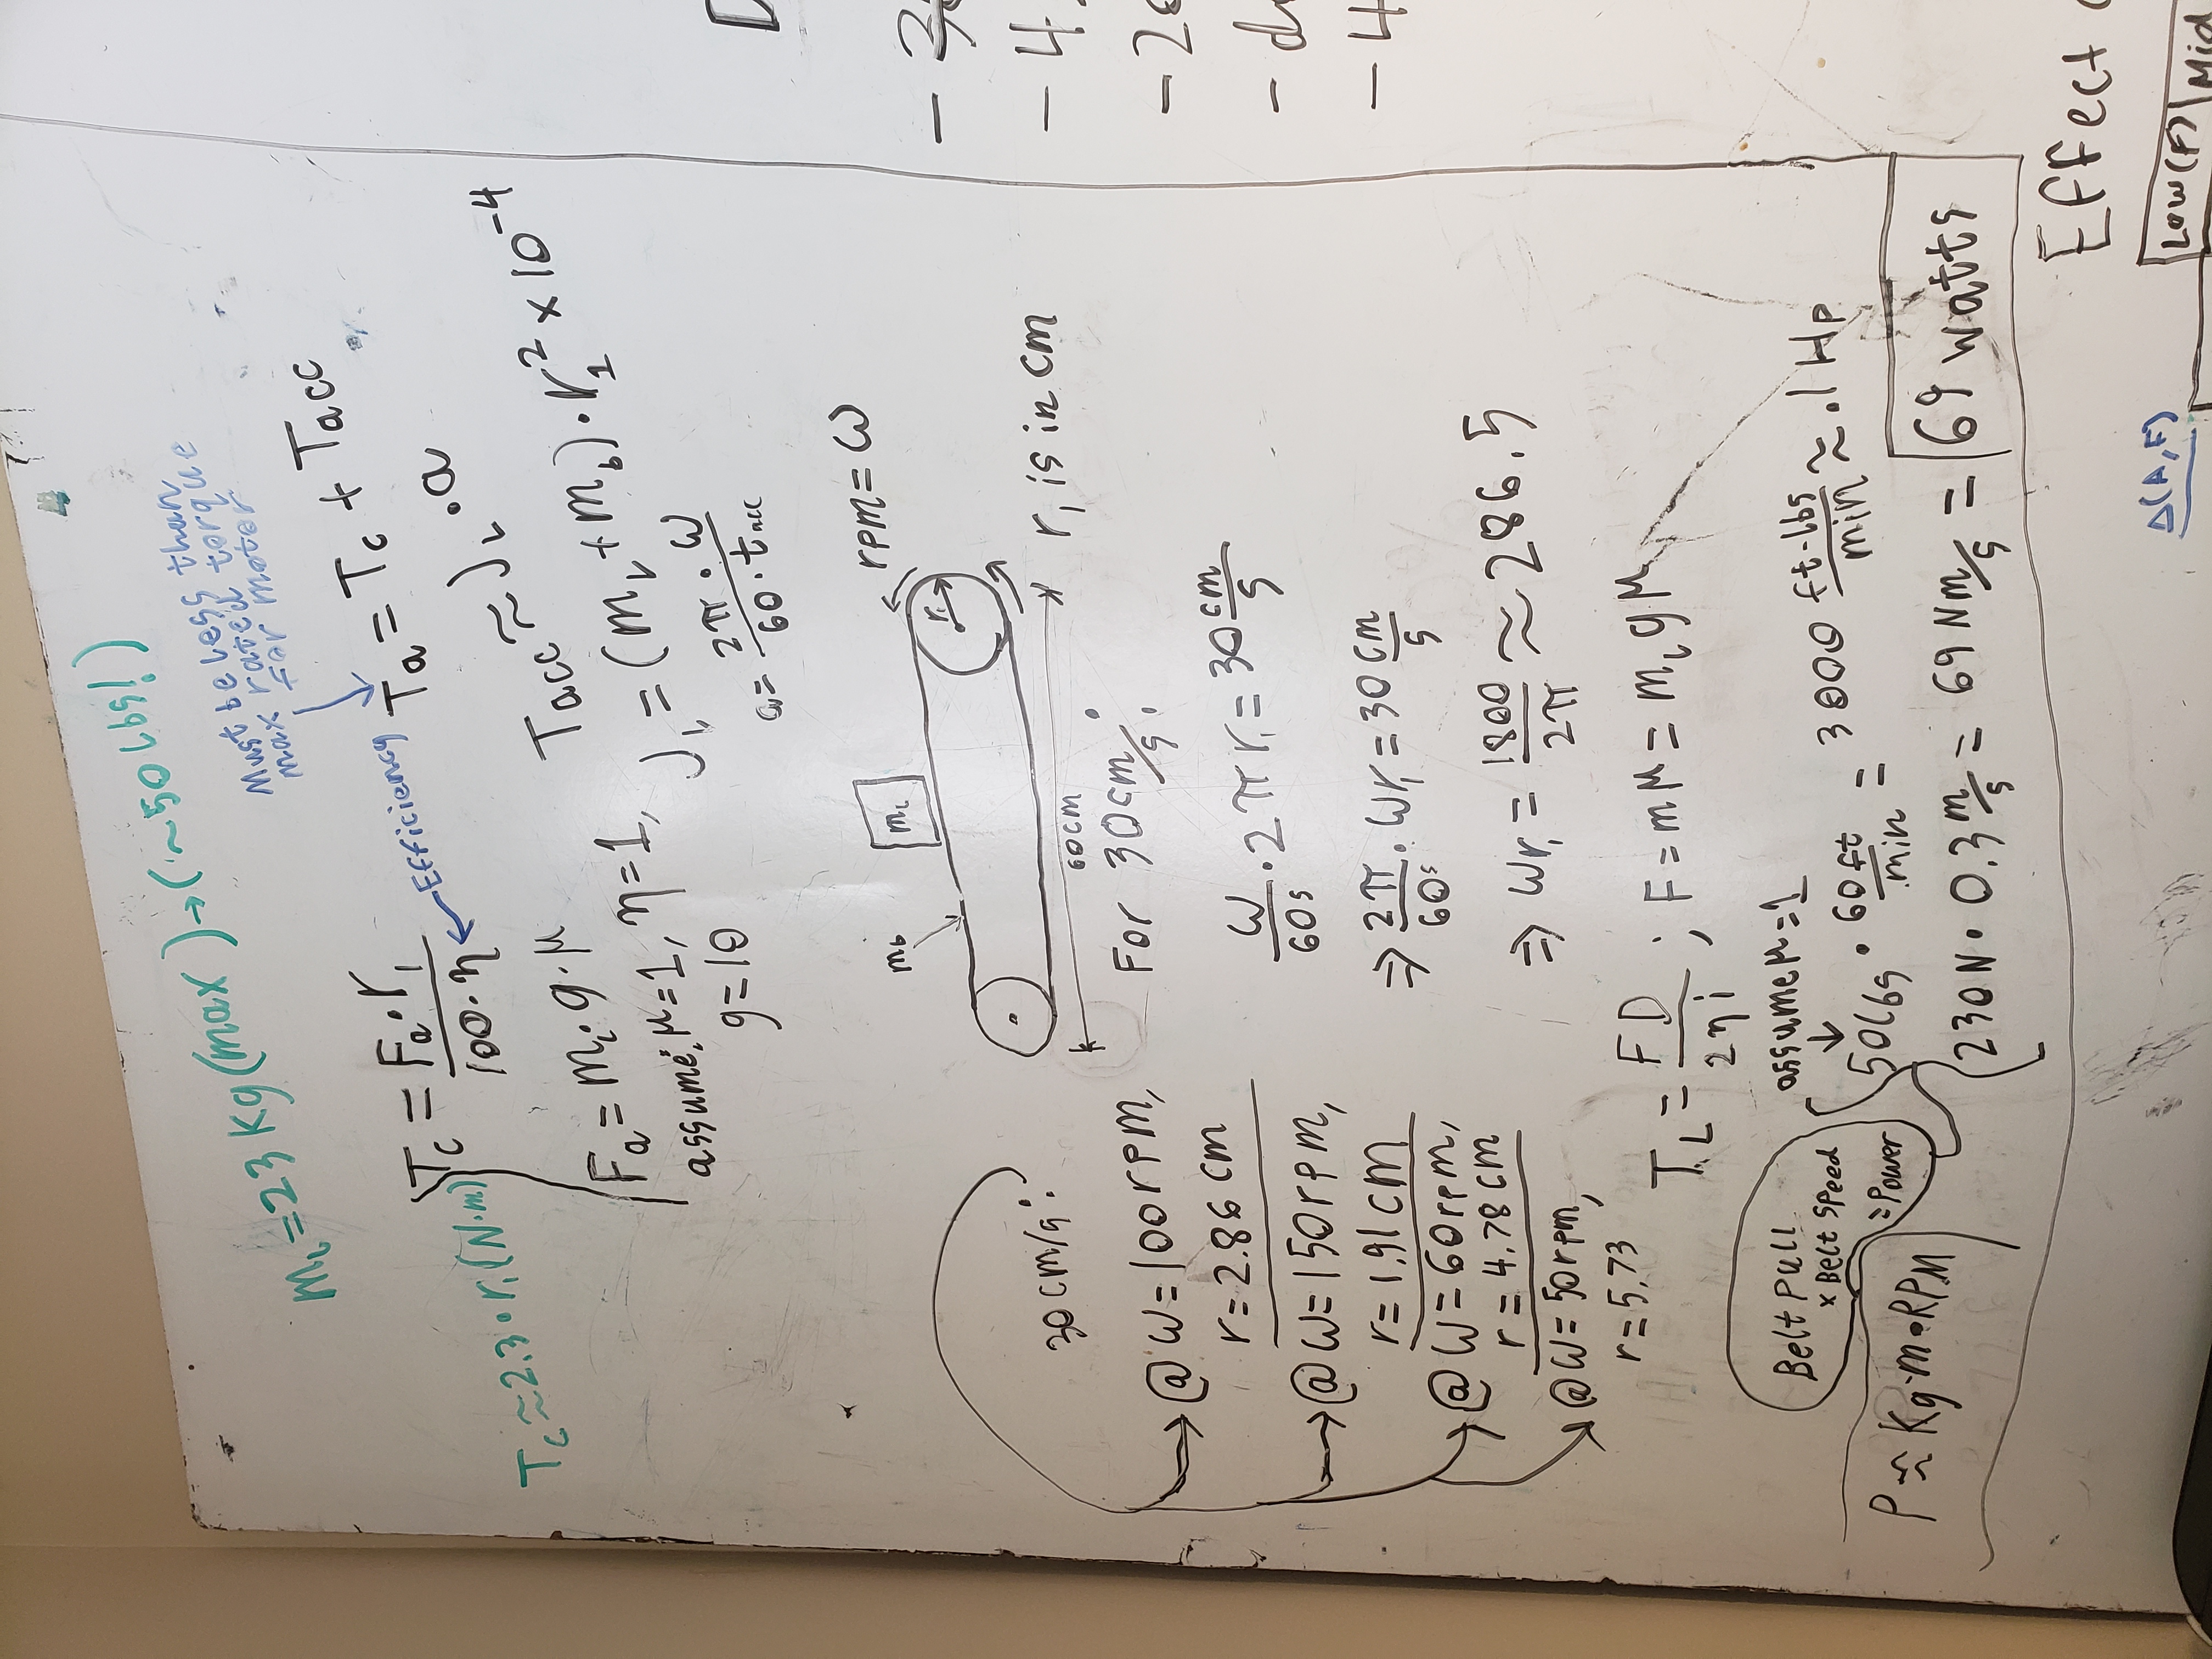 m_L = 23 Kg (max) → (~50 Lbs!)
Must be less than
max rated torque
for motor
T_c = F_a · r_1 / 100 · η ← Efficiency
T_a = T_c + T_acc
T_c ≈ 2.3 · r_1 (N·m)
T_acc ≈ J_L · a
F_a = m_L · g · μ
J_L = (m_L + m_b) · r_1^2 × 10^-4
assume: μ = 1, η = 1,
g = 10
a = 2π · ω / 60 · t_acc
rpm = ω
m_b
m_L
r_1
60 cm
r_1 is in cm
30 cm/s:
@ ω = 100 rpm,
r = 2.86 cm
@ ω = 150 rpm,
r = 1.91 cm
@ ω = 60 rpm,
r = 4.78 cm
@ ω = 50 rpm,
r = 5.73
For 30 cm/s:
ω/60s · 2πr_1 = 30 cm/s
⇒ 2π/60s · ωr_1 = 30 cm/s
⇒ ωr_1 = 1800/2π ≈ 286.5
T_L = FD / 2ηi ; F = mμ = m_L gμ
Belt Pull
× Belt Speed
= Power
assume μ = 1
50 Lbs · 60 ft/min = 3000 ft-lbs/min ≈ .1 Hp
P ≈ Kg·m·RPM
230 N · 0.3 m/s = 69 Nm/s = 69 watts
Effect
Δ(A,F)
Low (F)
Mid